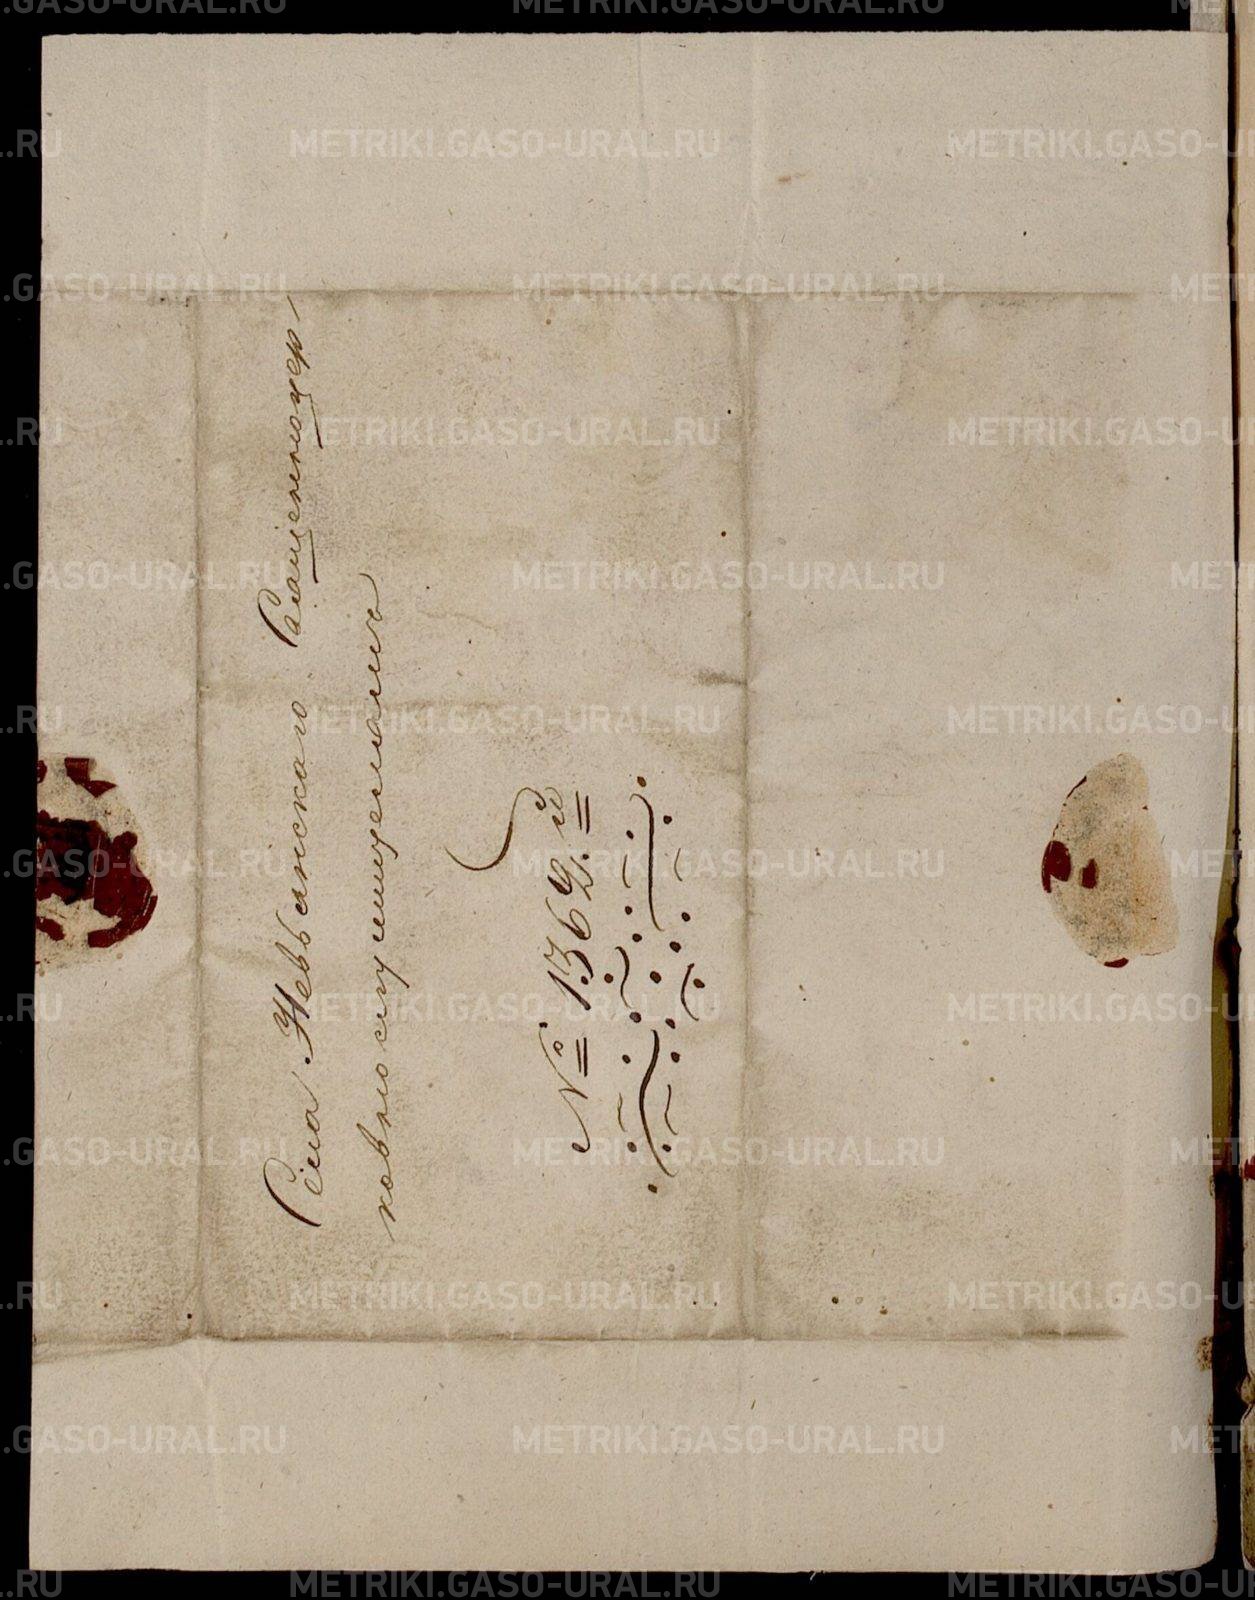 Села Невьянского Священноцер
ковнослужителямъ
№ 1362.й
METRIKI.GASO-URAL.RU